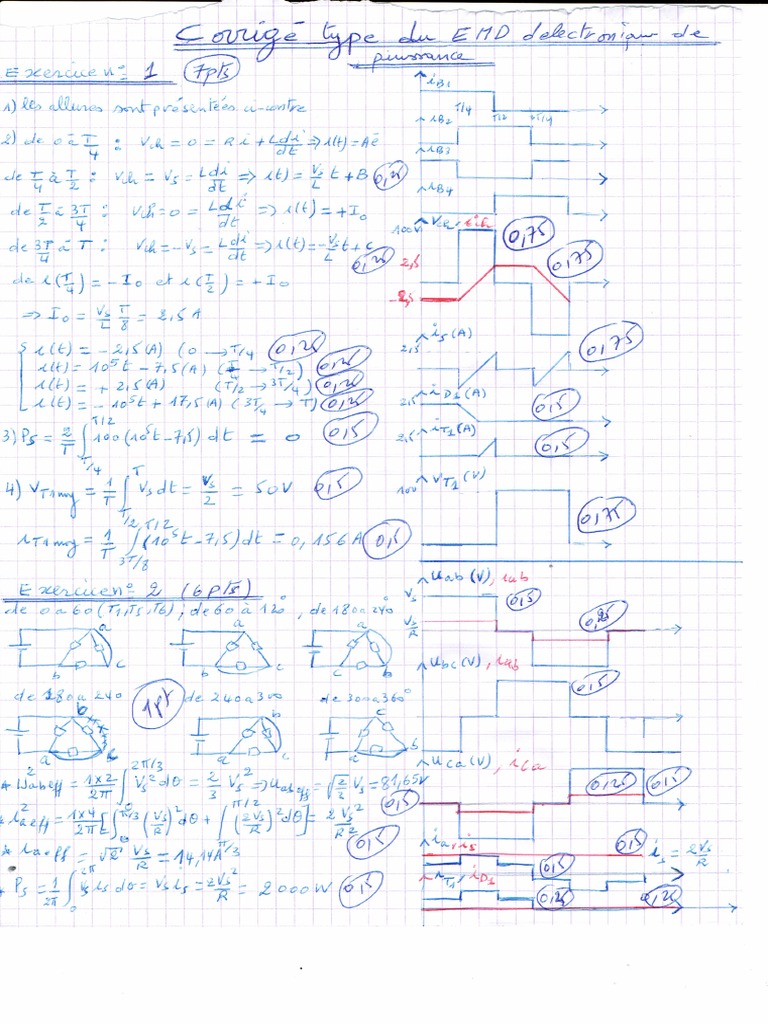 Corrigé type du EMD d'electronique de
puissance
Exercice n° 1 (7pts)
1) les allures sont présentées ci-contre
2) de 0 à T/4 : Vch = 0 = Ri + Ldi/dt ⇒ i(t) = Aē
de T/4 à T/2 : Vch = Vs = Ldi/dt ⇒ i(t) = Vs/L t + B 0,25
de T/2 à 3T/4 : Vch = 0 = Ldi/dt ⇒ i(t) = +I0
de 3T/4 à T : Vch = -Vs = Ldi/dt ⇒ i(t) = -Vs/L t + c 0,25
de i(T/4) = -I0 et i(T/2) = +I0
⇒ I0 = Vs/L T/8 = 2,5 A
i(t) = -2,5(A) (0 → T/4 0,25
i(t) = 10⁵t - 7,5(A) (T/4 → T/2) 0,25
i(t) = +2,5(A) (T/2 → 3T/4) 0,25
i(t) = -10⁵t + 17,5(A) (3T/4 → T) 0,25
3) Ps = 2/T ∫T/4 T/2 100(10⁵t - 7,5) dt = 0 0,5
4) VT1moy = 1/T ∫T/2 T Vs dt = Vs/2 = 50V 0,5
iT1moy = 1/T ∫3T/8 T/2 (10⁵t - 7,5) dt = 0,156A 0,5
iB1
T/4 T/2 3T/4
iB2
iB3
iB4
100V Vch, ich
0,75
2,5
0,75
-2,5
is(A)
2,5 0,75
iD1(A)
2,5 0,5
iT1(A)
2,5 0,5
VT1(V)
100
0,75
Exercice n° 2 (6pts)
de 0 a 60 (T1,T5,T6) ; de 60 à 120°, de 180 a 240°
a a a
b c b c c b
de 180 a 240 1pt de 240 a 300 de 300 a 360°
b b c
a c a c a b
* U²abeff = 1×2/2π ∫0 2π/3 Vs² dθ = 2/3 Vs² ⇒ Uabeff = √2/3 Vs = 81,65V 0,5
* i²aeff = 1×4/2π [∫0 π/3 (Vs/R)² dθ + ∫π/3 π/2 (2Vs/R)² dθ] = 2Vs²/R² 0,5
* iaeff = √2 Vs/R = 14,14A
* Ps = 1/2π ∫0 2π Vs is dθ = Vs is = 2Vs²/R = 2000W 0,5
Uab(V), iab
Vs 0,5
Vs/R 0,25
Ubc(V), iab
0,5
Uca(V), ica
0,25 0,5
ia, is
0,5 is = 2Vs/R
iT1, iD1
0,25 0,25